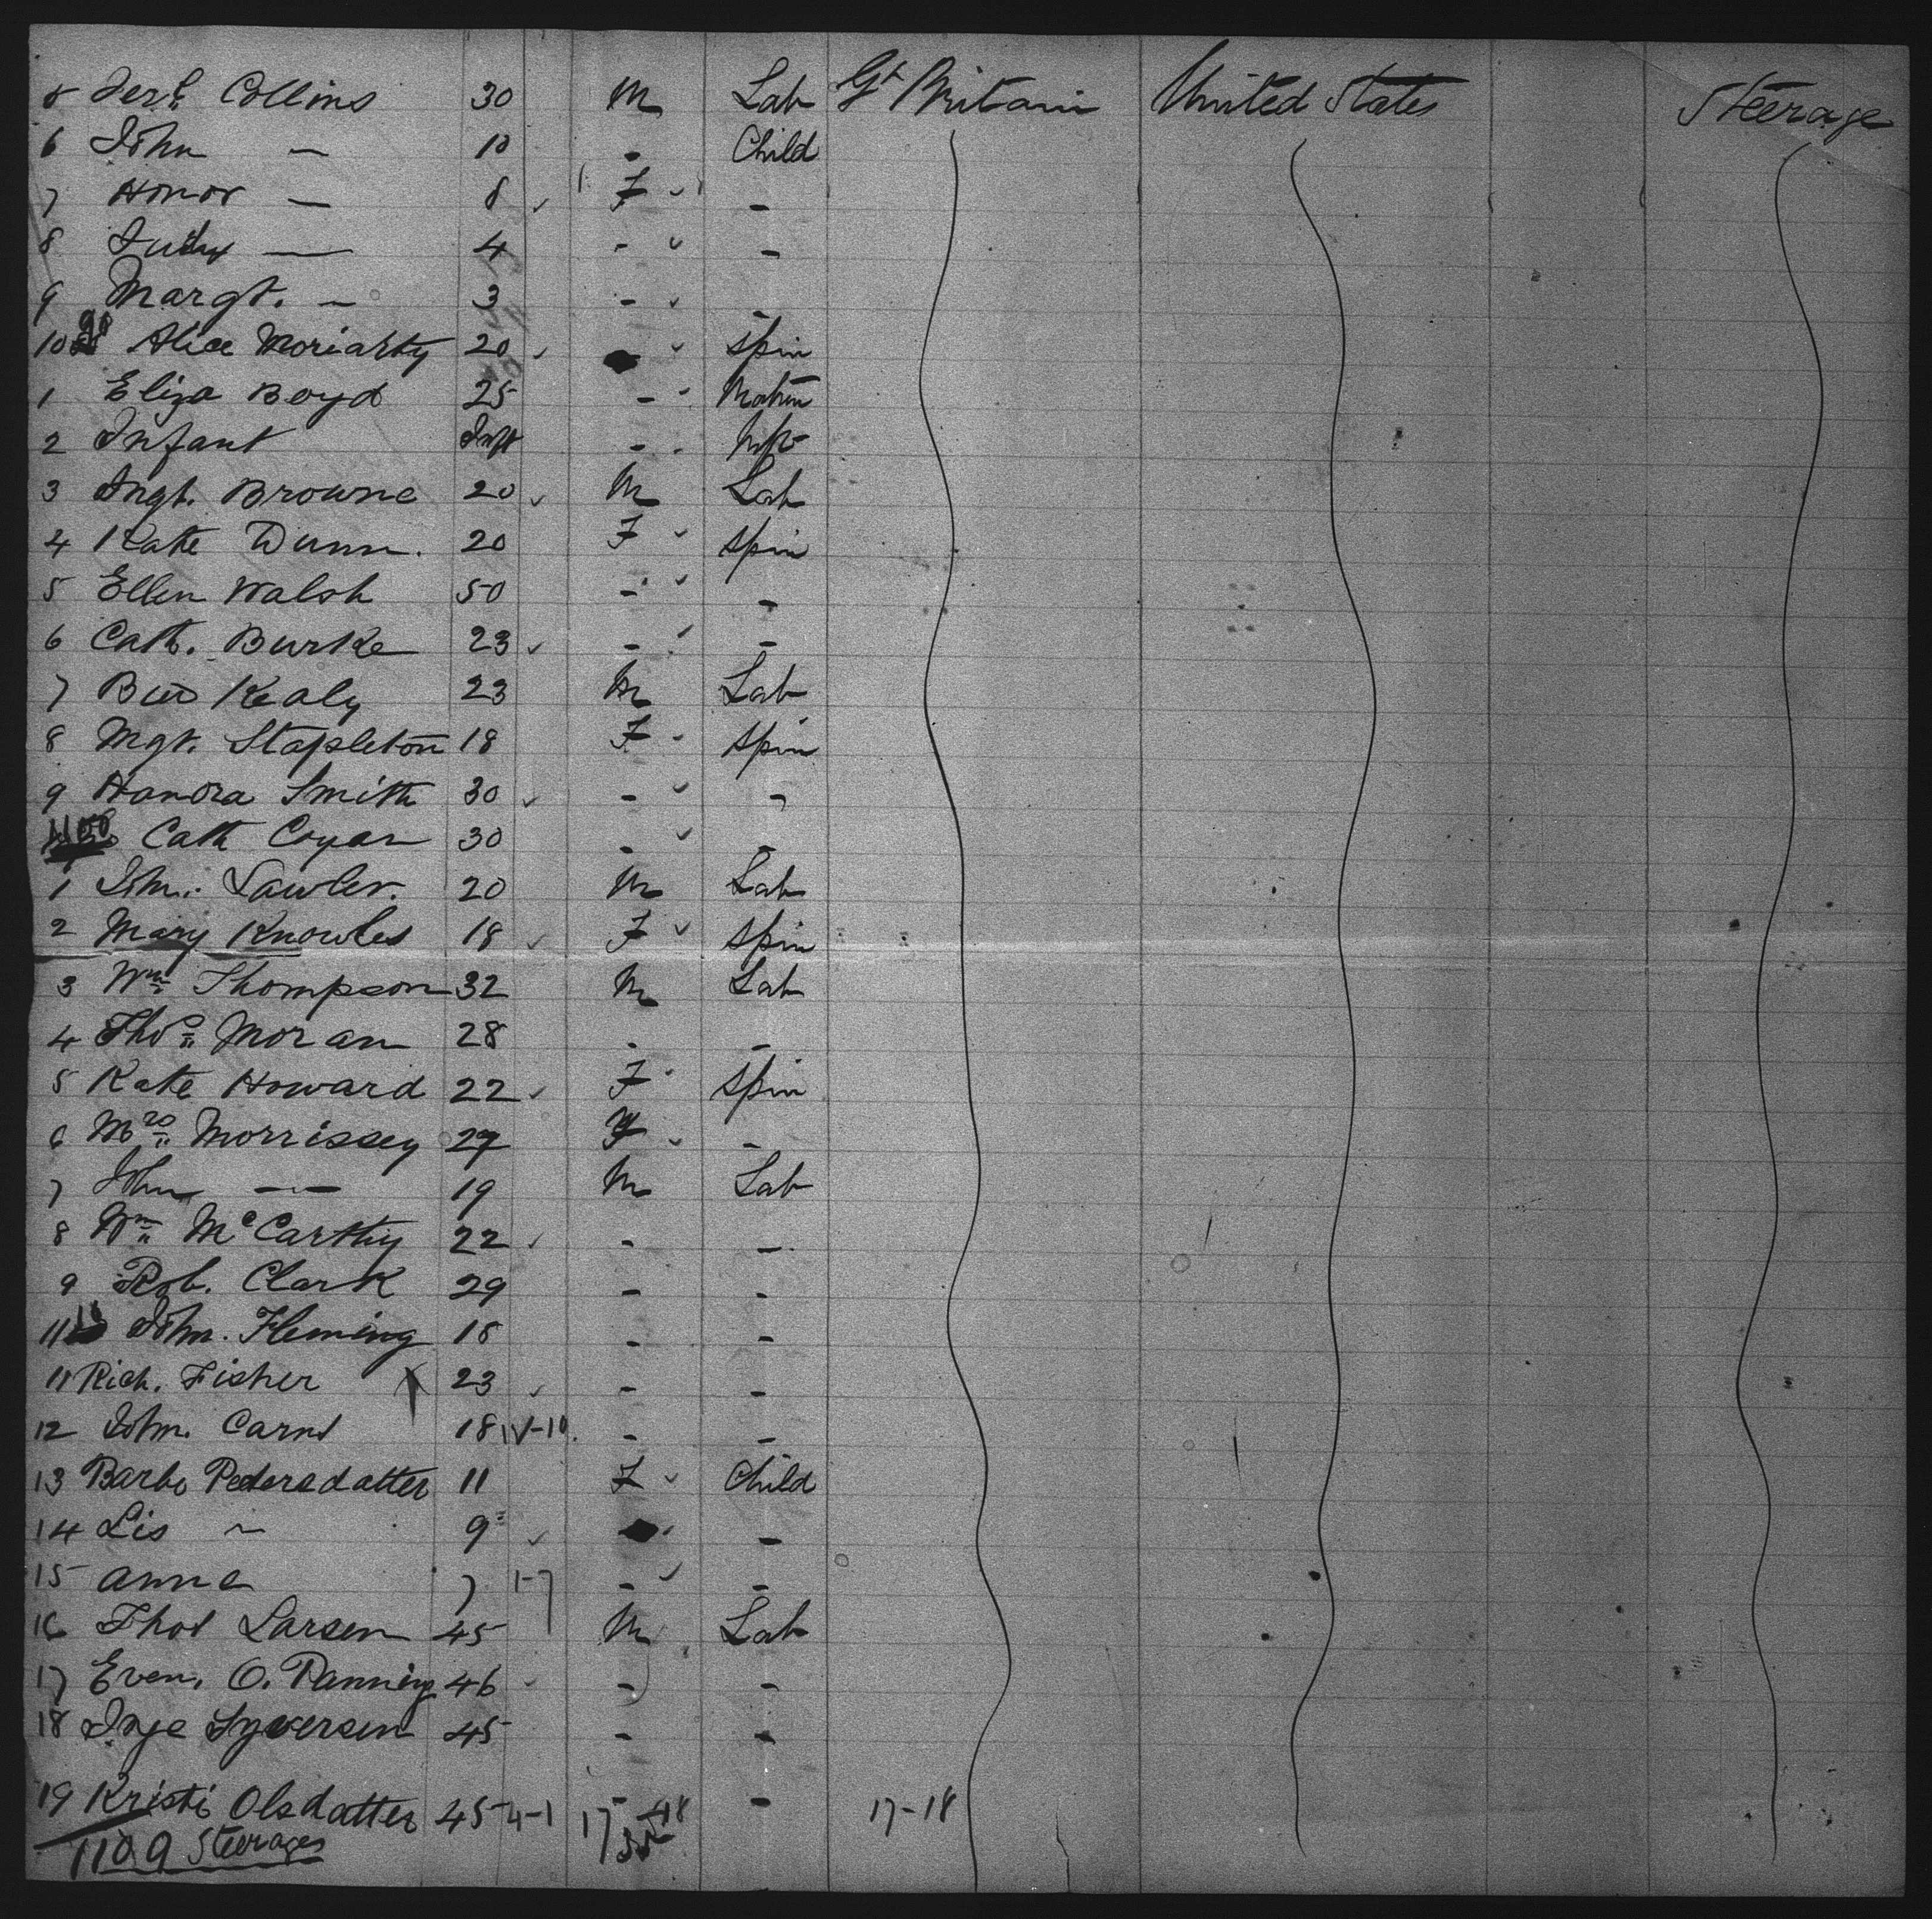 5 Jerh. Collins 30 M Lab Gt Britain United States Steerage
6 John — 10 - Child
7 Honor — 8 F -
8 Judy — 4 - -
9 Margt. — 3 - -
10 Alice Moriarty 20 Spin
1 Eliza Boyd 25 - Matron
2 Infant Inft - Inft
3 Browne 20 M Lab
4 Kate Dunn. 20 F Spin
5 Ellen Walsh 50 - -
6 Cath. Burke 23 - -
7 Kealy 23 M Lab
8 Mgt. Stapleton 18 F Spin
9 Hanora Smith 30 - -
Cath 30 - -
1 Lawler. 20 M Lab
2 Mary Knowles 18 F Spin
3 Wm Thompson 32 M Lab
4 Thos Moran 28 - -
5 Kate Howard 22 F Spin
6 Mrs Morrissey 27 F -
7 John — 19 M Lab
8 Wm McCarthy 22 - -
9 Rob. Clark 29 - -
John. Fleming 18 - -
11 Rich. Fisher X 23 - -
12 John. Carns 18 - -
13 Barbo Pedersdatter 11 F Child
14 Lis ~ 9 -
15 Anne 7 1-7 - -
16 Thos Larsen 45 M Lab
17 Even. O. Ranning 46 - -
18 Inge Syversen 45 - -
19 Kristi Olsdatter 45 4-1 - - 17-18
1109 Steerages